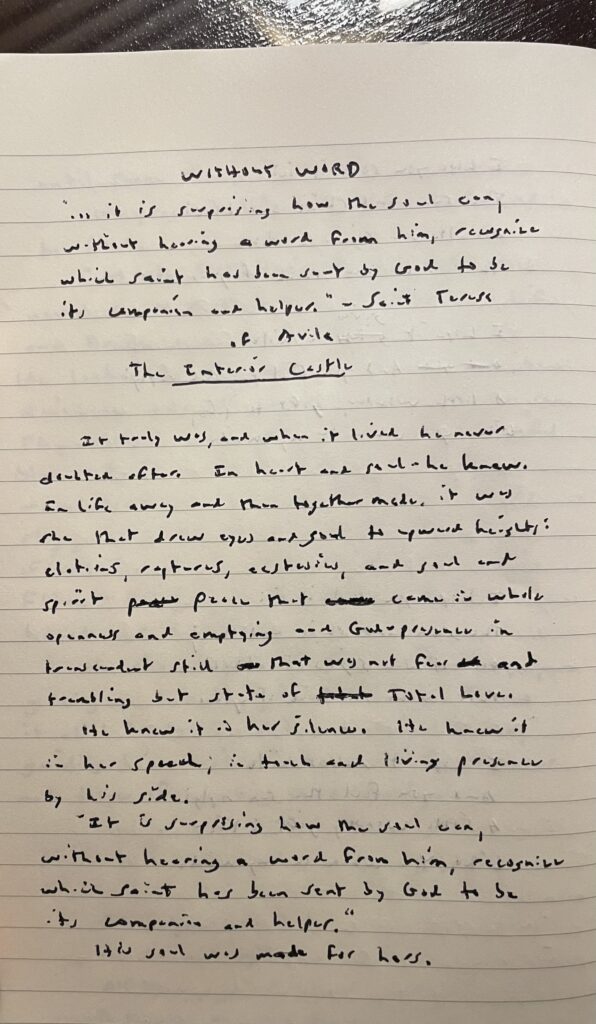 WITHOUT WORD
"... it is surprising how the soul can,
without hearing a word from him, recognize
which saint has been sent by God to be
its companion and helper." - Saint Teresa
of Avila
The Interior Castle
It truly was, and when it lived he never
doubted after. In heart and soul - he knew.
In life away and then together made, it was
she that drew eyes and soul to upward heights:
elations, raptures, ecstasies, and soul and
spirit peace that came in whole
openness and emptying and God-presence in
transcendent still that was not fear and
trembling but state of Total Love.
He knew it in her silence. He knew it
in her speech; in touch and living presence
by his side.
"It is surprising how the soul can,
without hearing a word from him, recognize
which saint has been sent by God to be
its companion and helper."
His soul was made for hers.